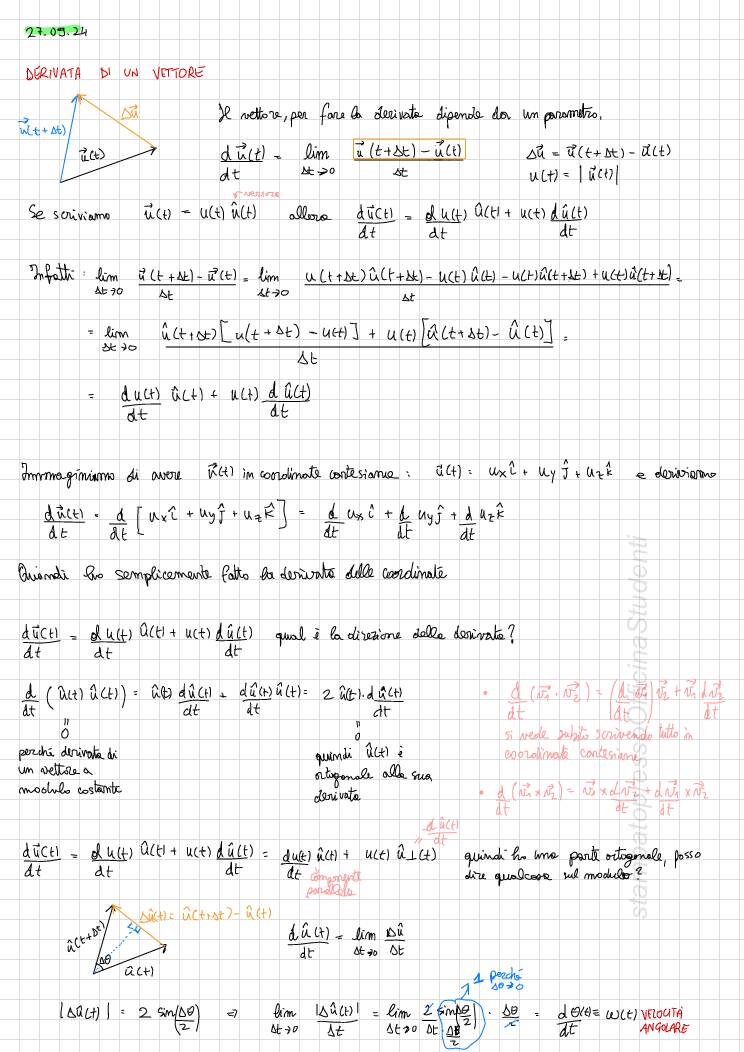 27.09.24
DERIVATA DI UN VETTORE
u⃗(t+Δt)
Δu⃗
u⃗(t)
Il vettore, per fare la derivata dipende da un parametro.
du⃗(t)/dt = lim Δt→0 (u⃗(t+Δt) − u⃗(t))/Δt
Δu⃗ = u⃗(t+Δt) − u⃗(t)
u(t) = |u⃗(t)|
versore
Se scriviamo u⃗(t) = u(t) û(t) allora du⃗(t)/dt = du(t)/dt û(t) + u(t) dû(t)/dt
Infatti: lim Δt→0 (u⃗(t+Δt) − u⃗(t))/Δt = lim Δt→0 (u(t+Δt)û(t+Δt) − u(t)û(t) − u(t)û(t+Δt) + u(t)û(t+Δt))/Δt =
= lim Δt→0 (û(t+Δt)[u(t+Δt) − u(t)] + u(t)[û(t+Δt) − û(t)])/Δt =
= du(t)/dt û(t) + u(t) dû(t)/dt
Immaginiamo di avere u⃗(t) in coordinate cartesiane: u⃗(t) = uxî + uyĵ + uzk̂ e deriviamo
du⃗(t)/dt = d/dt [uxî + uyĵ + uzk̂] = d/dt uxî + d/dt uyĵ + d/dt uzk̂
Quindi ho semplicemente fatto la derivata delle coordinate
du⃗(t)/dt = du(t)/dt û(t) + u(t) dû(t)/dt qual è la direzione della derivata?
d/dt (û(t) û(t)) = û(t) dû(t)/dt + dû(t)/dt û(t) = 2 û(t)·dû(t)/dt
"
0
perché derivata di
un vettore a
modulo costante
"
0
quindi û(t) è
ortogonale alla sua
derivata
• d/dt (v⃗1 · v⃗2) = (dv⃗1/dt) v⃗2 + v⃗1 dv⃗2/dt
si vede subito scrivendo tutto in
coordinate cartesiane
• d/dt (v⃗1 × v⃗2) = v⃗1 × dv⃗2/dt + dv⃗1/dt × v⃗2
= dû(t)/dt
du⃗(t)/dt = du(t)/dt û(t) + u(t) dû(t)/dt = du(t)/dt û(t) + u(t) û⊥(t) quindi ho una parte ortogonale, posso
dire qualcosa sul modulo?
componente
parallela
û(t+Δt)
Δû(t) = û(t+Δt) − û(t)
Δθ
û(t)
dû(t)/dt = lim Δt→0 Δû/Δt
1 perché
Δθ→0
|Δû(t)| = 2 sin(Δθ/2) ⇒ lim Δt→0 |Δû(t)|/Δt = lim Δt→0 2 sin(Δθ/2)/(Δt · Δθ/2) · Δθ/2 = dθ(t)/dt = ω(t) VELOCITÀ
ANGOLARE
stampatopressoOfficinaStudenti